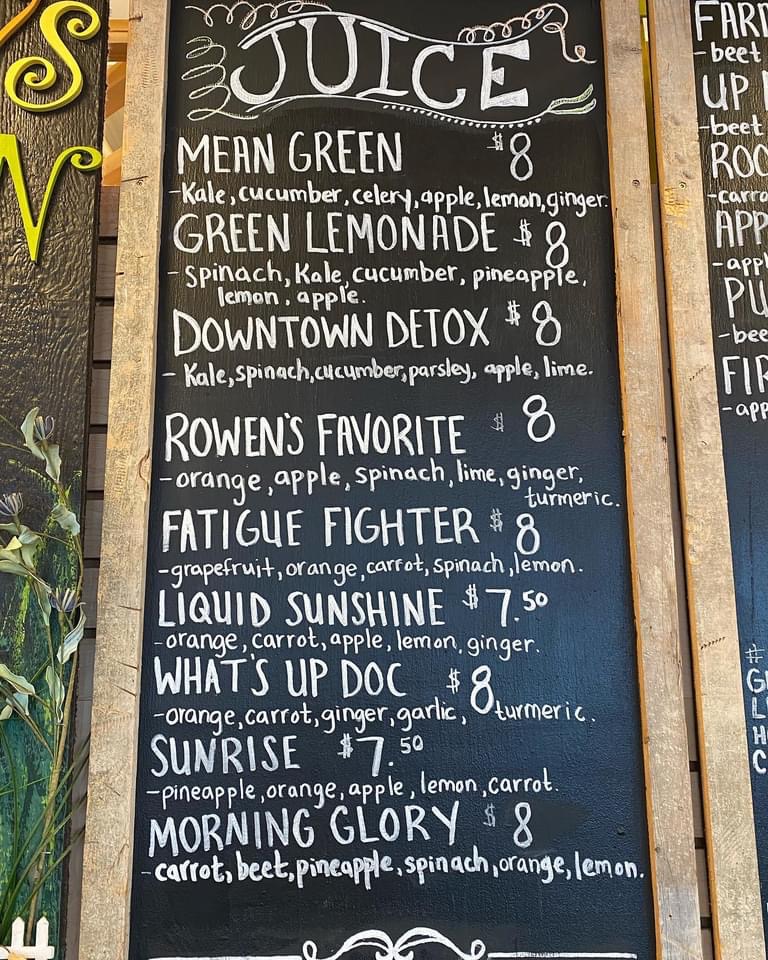 S
N
JUICE
MEAN GREEN $8
-Kale, cucumber, celery, apple, lemon, ginger.
GREEN LEMONADE $8
- spinach, Kale, cucumber, pineapple,
lemon, apple.
DOWNTOWN DETOX $8
- Kale, spinach, cucumber, parsley, apple, lime.
ROWEN'S FAVORITE $8
-orange, apple, spinach, lime, ginger,
turmeric.
FATIGUE FIGHTER $8
-grapefruit, orange, carrot, spinach, lemon.
LIQUID SUNSHINE $7.50
-orange, carrot, apple, lemon, ginger.
WHAT'S UP DOC $8
-orange, carrot, ginger, garlic, turmeric.
SUNRISE $7.50
-pineapple, orange, apple, lemon, carrot.
MORNING GLORY $8
-carrot, beet, pineapple, spinach, orange, lemon.
-beet
UP
-beet